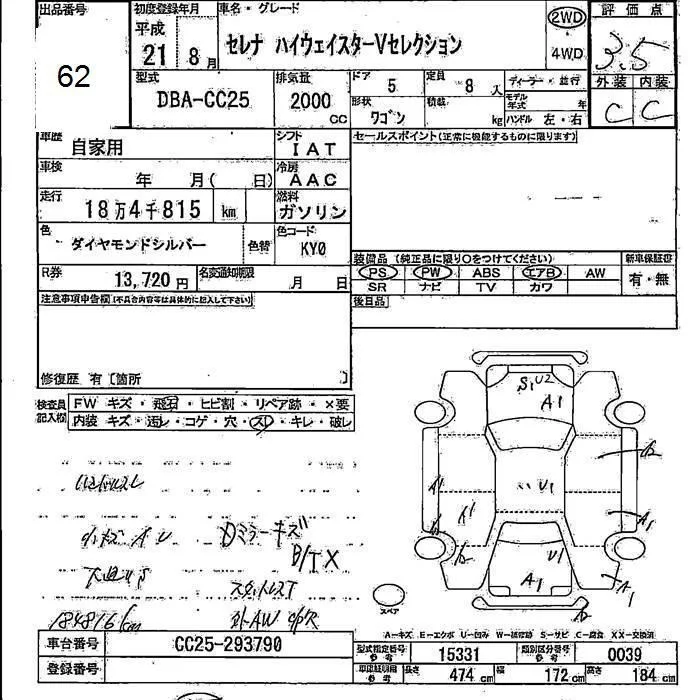 出品番号 初度登録年月 車名・グレード 評価点
62 平成 21 8月 セレナ ハイウェイスターVセレクション 2WD 4WD 3.5
型式 排気量 ドア 定員 ディーラー・並行 外装 内装
DBA-CC25 2000 CC 5 8人 モデル年式 年 C C
形状 ワゴン 積載 kg ハンドル 左・右
車歴 自家用 シフト IAT セールスポイント(正常に機能するものに限ります)
車検 年 月( 日) 冷房 AAC
走行 18万4千815 km 燃料 ガソリン
色 ダイヤモンドシルバー 色替 色コード KY0
装備品 (純正品に限り○をつけてください) 新車保証書
R券 13,720円 名変通知期限 月 日 PS PW ABS エアB AW 有・無
SR ナビ TV カワ
注意事項申告欄(不具合内容等は具体的に記入して下さい) 後日品
修復歴 有〔箇所 〕
検査員記入欄 FW キズ・飛石・ヒビ割・リペア跡・×要
内装 キズ・汚レ・コゲ・穴・スレ・キレ・破レ
S1 U2
A1
U1
A1
U1
A1
A1
Dミラーキズ
B/TX
スタットレスT
184816km 外AW
スペア
A-キズ E-エクボ U-凹み W-補修跡 S-サビ C-腐食 XX-交換済
車台番号 CC25-293790 型式指定番号 参考 15331 類別区分番号 参考 0039
登録番号 車庫証明用 参考 長さ 474cm 幅 172cm 高さ 184cm